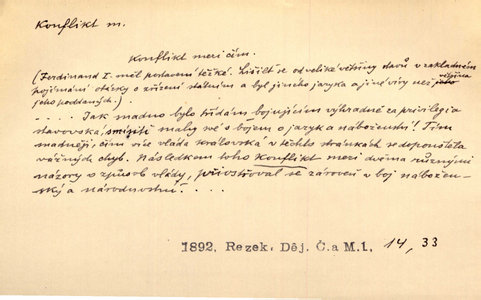 Konflikt m.
Konflikt mezi čím.
(Ferdinand I. měl postavení těžké. Lišilť se od veliké většiny stavů v základním
pojímání otázky o zřízení státním a byl jiného jazyka a jiné víry než většina
jeho poddaných.)
.... Jak snadno bylo třídám bojujícím výhradně za privilegia
stavovská, smísiti malý ně s bojem o jazyk a náboženství! Tím
snadněji, čím více vláda královská v těchto stránkách se dopouštěla
vážných chyb. Následkem toho konflikt mezi dvěma různými
názory o způsob vlády, přiostřoval se zároveň v boj nábožen-
ský a národnostní. . . .
1892, Rezek, Děj. Č. a M. 1, 14, 33